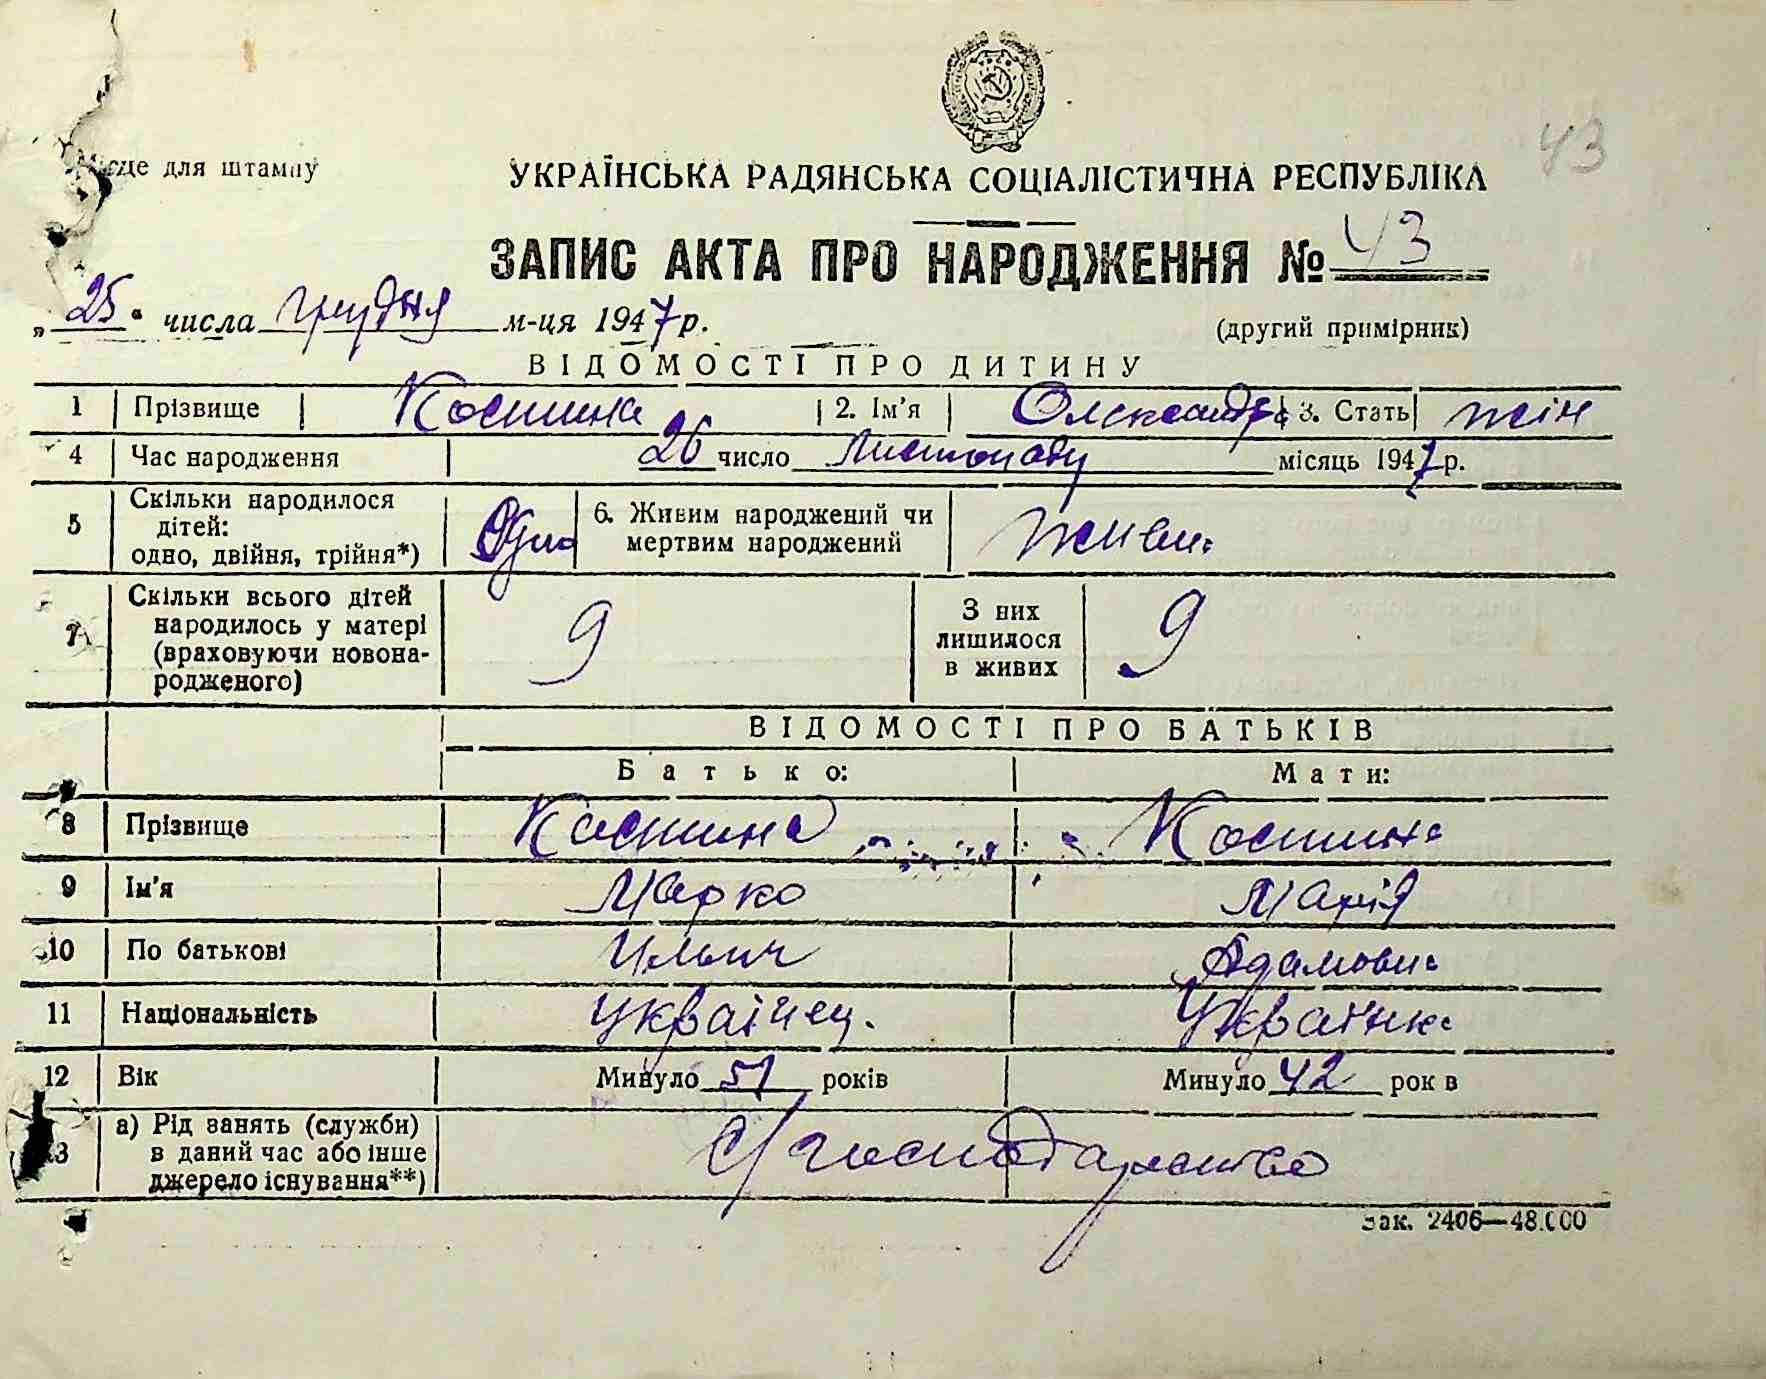 43
Місце для штампу
УКРАЇНСЬКА РАДЯНСЬКА СОЦІАЛІСТИЧНА РЕСПУБЛІКА
ЗАПИС АКТА ПРО НАРОДЖЕННЯ № 43
„25“ числа грудня м-ця 1947 р.
(другий примірник)
ВІДОМОСТІ ПРО ДИТИНУ
1 Прізвище Костина 2. Ім'я Олександра 3. Стать жін
4 Час народження 26 число листопаду місяць 1947 р.
5 Скільки народилося дітей: одно, двійня, трійня*) Одно 6. Живим народжений чи мертвим народжений живи.
7 Скільки всього дітей народилось у матері (враховуючи новонародженого) 9 З них лишилося в живих 9
ВІДОМОСТІ ПРО БАТЬКІВ
Батько: Мати:
8 Прізвище Костина Костина
9 Ім'я Марко Марія
10 По батькові Ильич Адамовн.
11 Національність Українец. Українка
12 Вік Минуло 51 років Минуло 42 рок в
13 а) Рід занять (служби) в даний час або інше джерело існування**) с/господарство
Зак. 2406—48.000